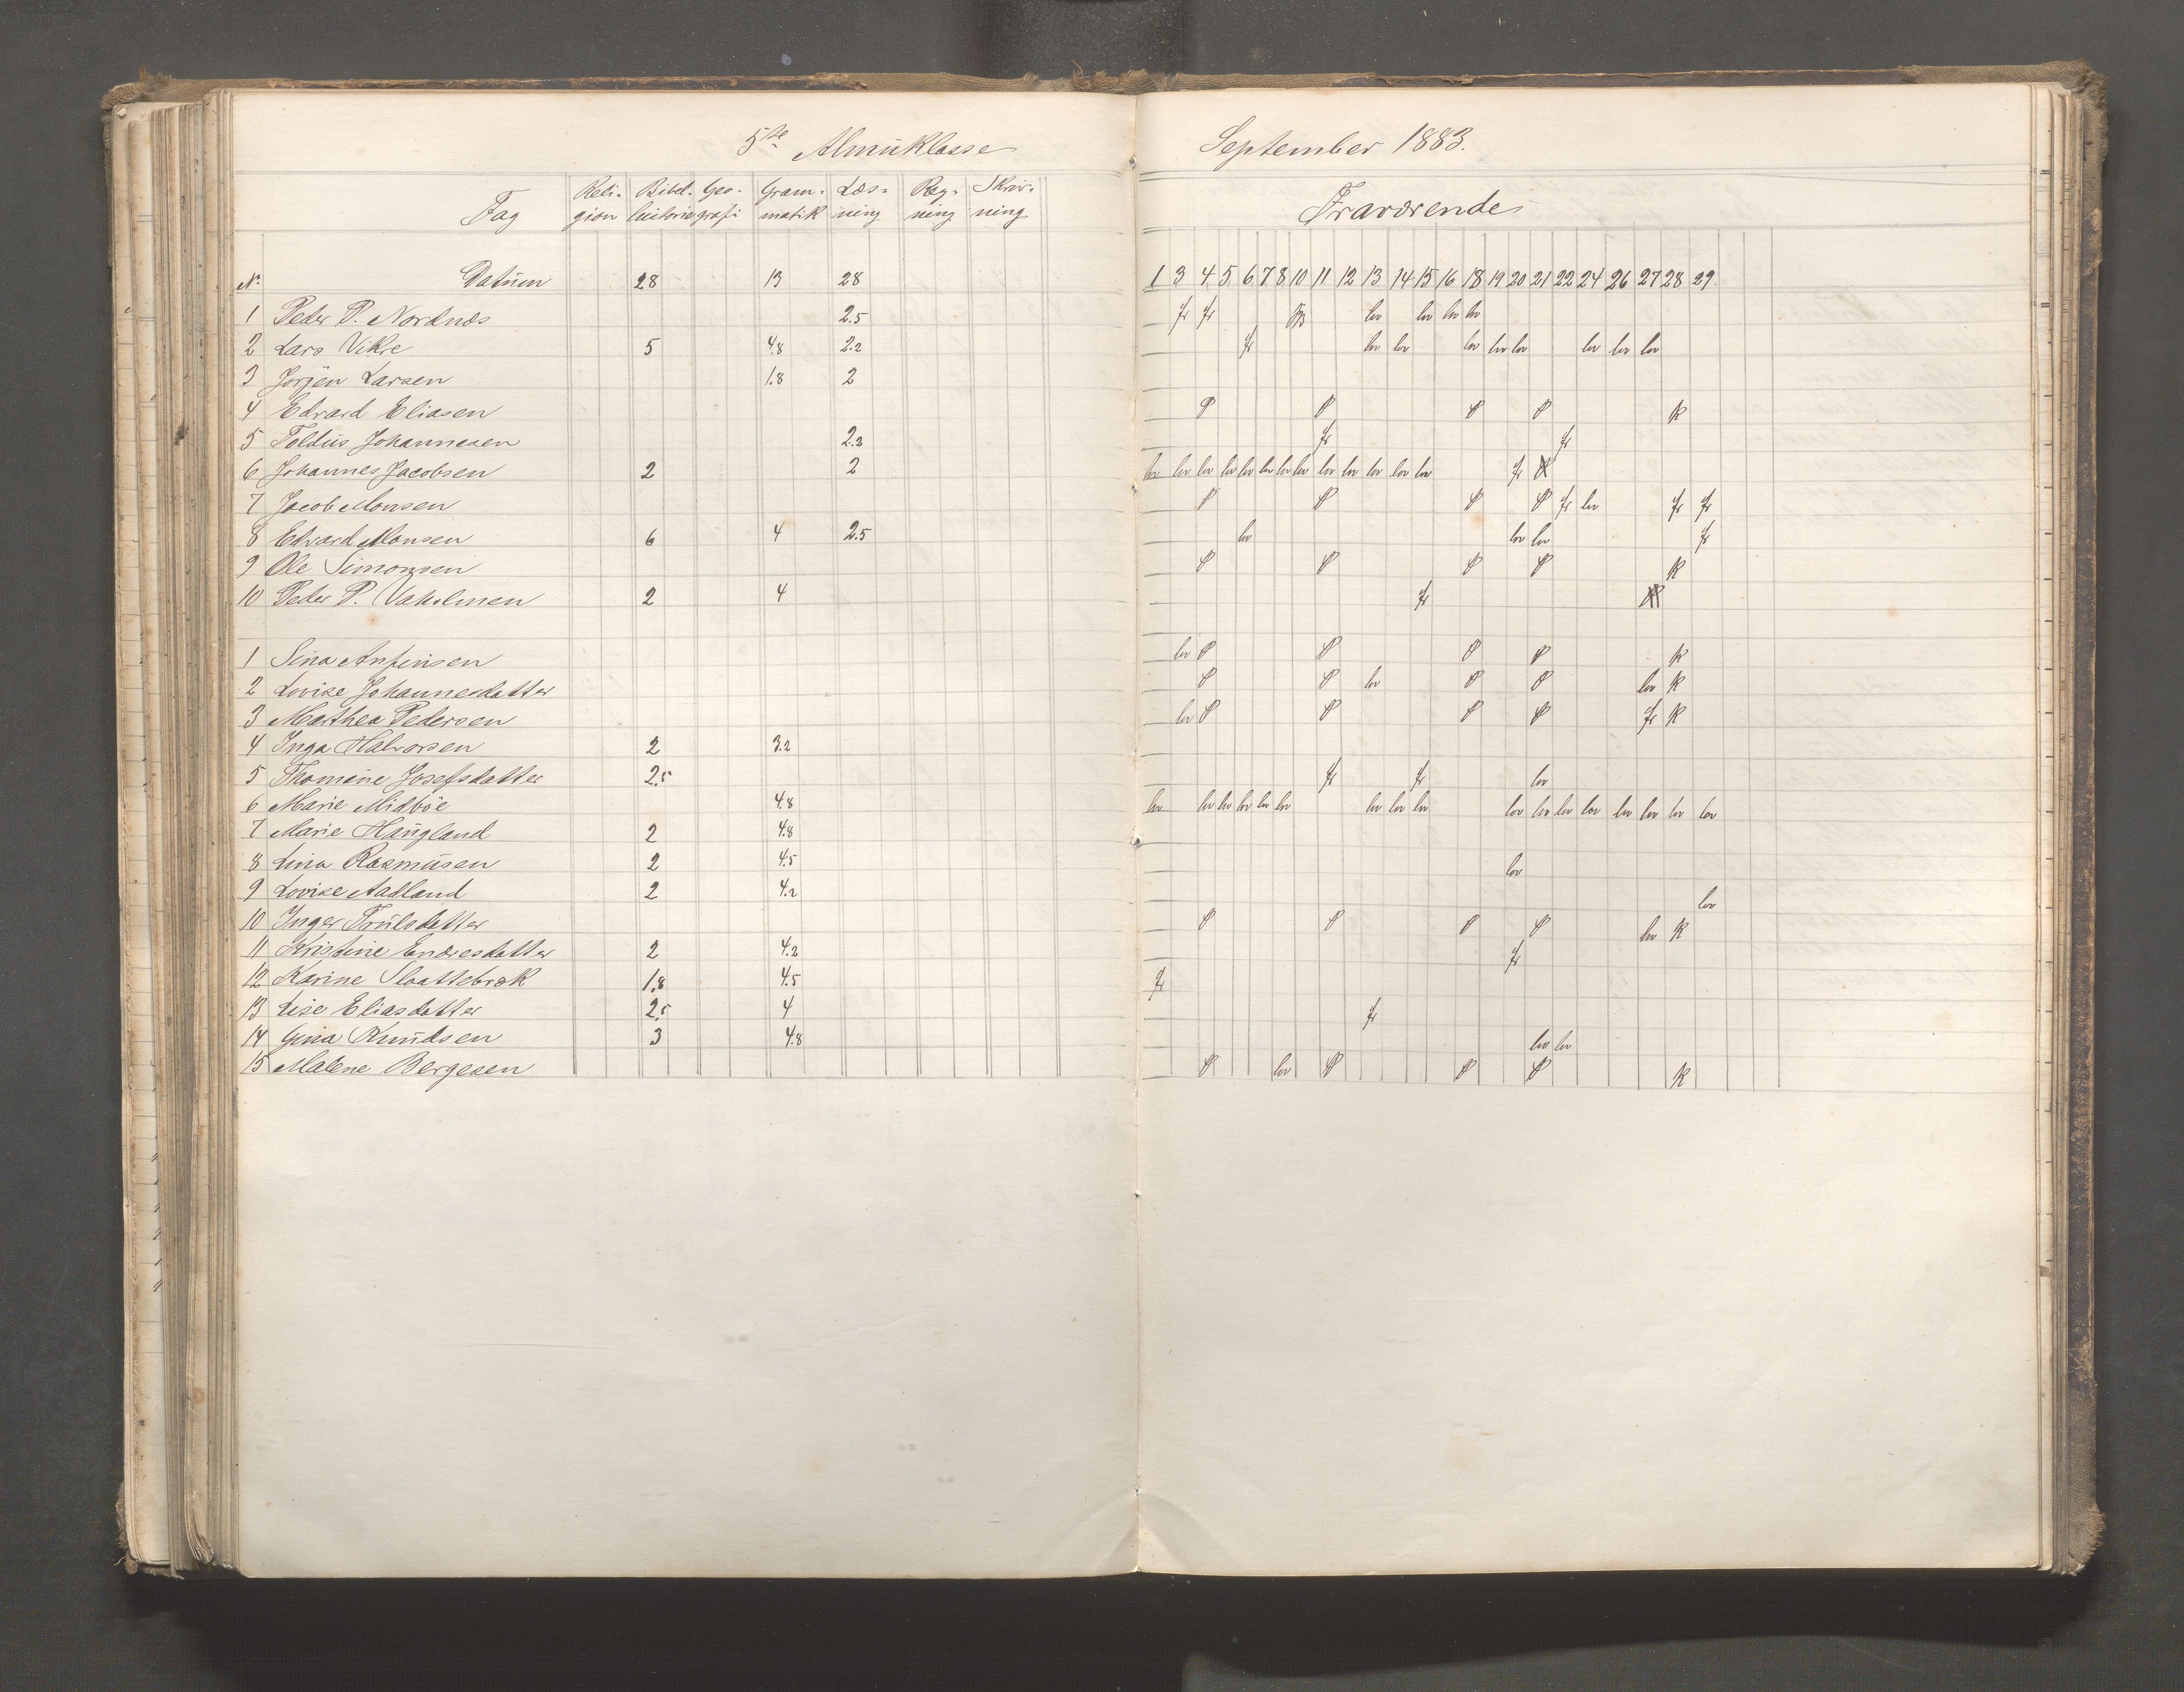 5te Almuklasse
Fag Reli- Bibel- Geo- Gram- Læs- Reg- Skriv-
gion historie grafi matik ning ning ning
No. Datum 28 13 28
1 Peder P. Nordnæs 2.5
2 Lars Vikre 5 4.8 2.2
3 Jørgen Larsen 1.8 2
4 Edvard Eliasen
5 Johannesen 2.2
6 Johannes Jacobsen 2 2
7 Jacob Monsen
8 Edvard Monsen 6 4 2.5
9 Ole Simonsen
10 Peder P. 2 4
1 Sina Anfinsen
2 Lovise Johannesdatter
3 Marthea Pedersen
4 Inga Halvorsen 2 3.2
5 Thomine Josefsdatter 2.5
6 Marie Midbøe 4.8
7 Marie Haugland 2 4.8
8 Lina Rasmusen 2 4.5
9 Lovise Aadland 2 4.2
10 Inger Trulsdatter
11 Kristine Endresdatter 2 4.2
12 Karine Slaattebræk 1.8 4.5
13 Lise Eliasdatter 2.5 4
14 Gina Knudsen 3 4.8
15 Malene Bergesen
September 1883.
Fraværende
1 3 4 5 6 7 8 10 11 12 13 14 15 16 18 19 20 21 22 24 26 27 28 29.
fr fr lov lov lov lov
fr lov lov lov lov lov lov lov lov
P P P P K
fr fr
lov lov lov lov lov lov lov lov lov lov lov lov lov fr
P P P P fr lov fr fr
lov lov lov fr
P P P P K
fr
lov P P P P K
P P lov P P lov K
lov P P P P fr K
fr fr lov
lov lov lov lov lov lov lov lov lov lov lov lov lov lov lov lov lov
lov
lov
P P P P lov K
fr
fr
fr
lov lov
P lov P P P K